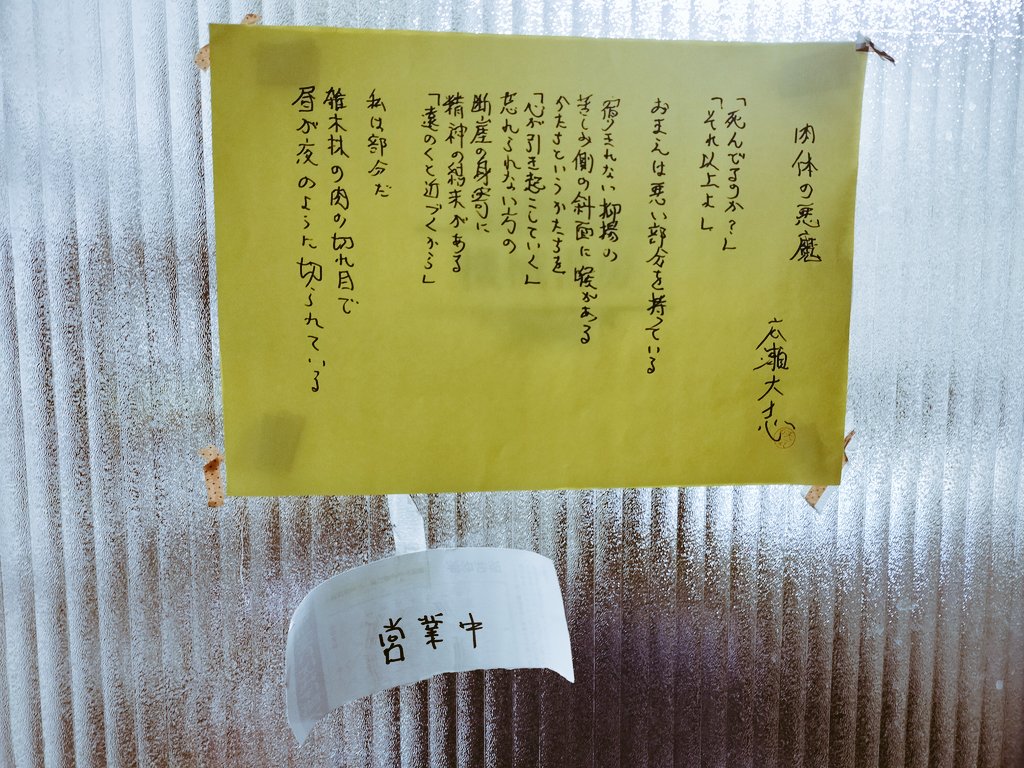 肉体の悪魔
広瀬大志
「死んでるのか?」
「それ以上よ」
おまえは悪い部分を持っている
されない抑揚の
きしみ側の斜面に喉がある
かたちというかたちを
「心が引き起こしていく」
忘れられない方の
断崖の身寄に
精神の結末がある
「遠のくと近づくから」
私は部分だ
雑木林の肉の切れ目で
昼が夜のように切られている
営業中